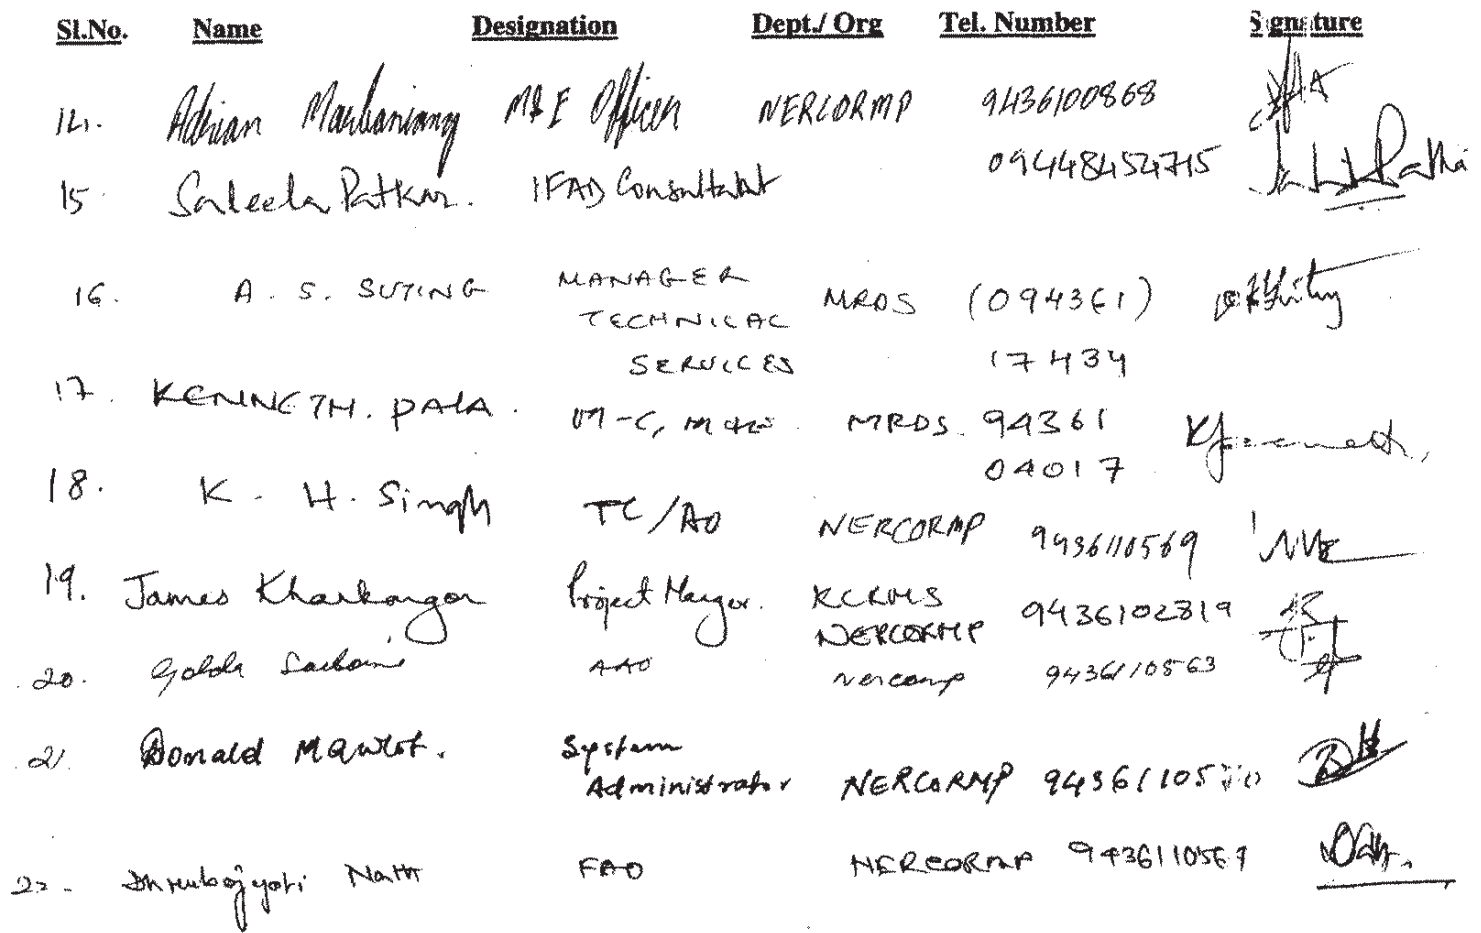 Sl.No. Name Designation Dept./ Org Tel. Number Signature
14. Adrian Marbaniang M&E Officer NERCORMP 9436100868
15 Saleela Patkar. IFAD Consultant 09448454715
16. A. S. SUTING MANAGER MRDS (094361)
TECHNICAL
SERVICES 17434
17. KENNETH. PALA. MRDS. 94361
04017
18. K. H. Singh TC/AO NERCORMP 9436110569
19. James Kharkongor Project Manger. KCRMS 9436102819
NERCORMP
20. Golda AAO Nercormp 9436110563
21. Donald Mawlot. System
Administrator NERCORMP
22. Dhrubajyoti Nath FAO NERCORMP 9436110567